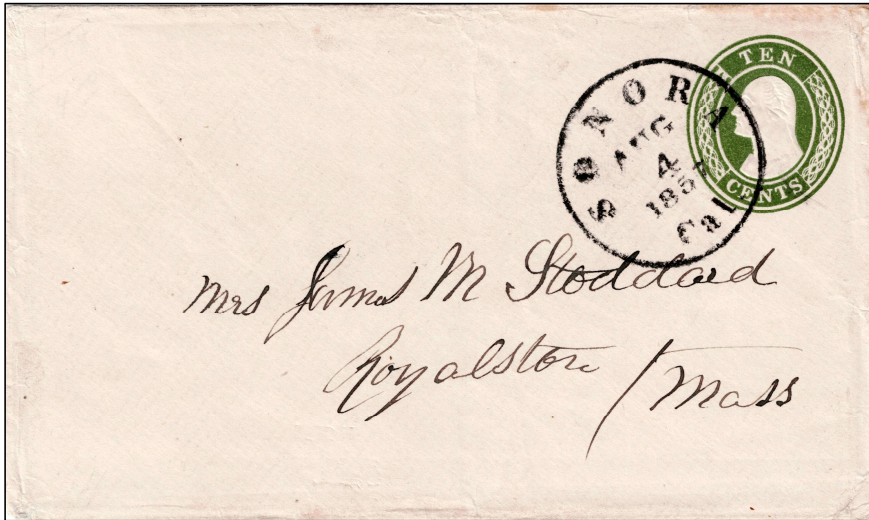 TEN
CENTS
SONORA
AUG
4
Cal
Mrs James M Stoddard
Royalston / Mass